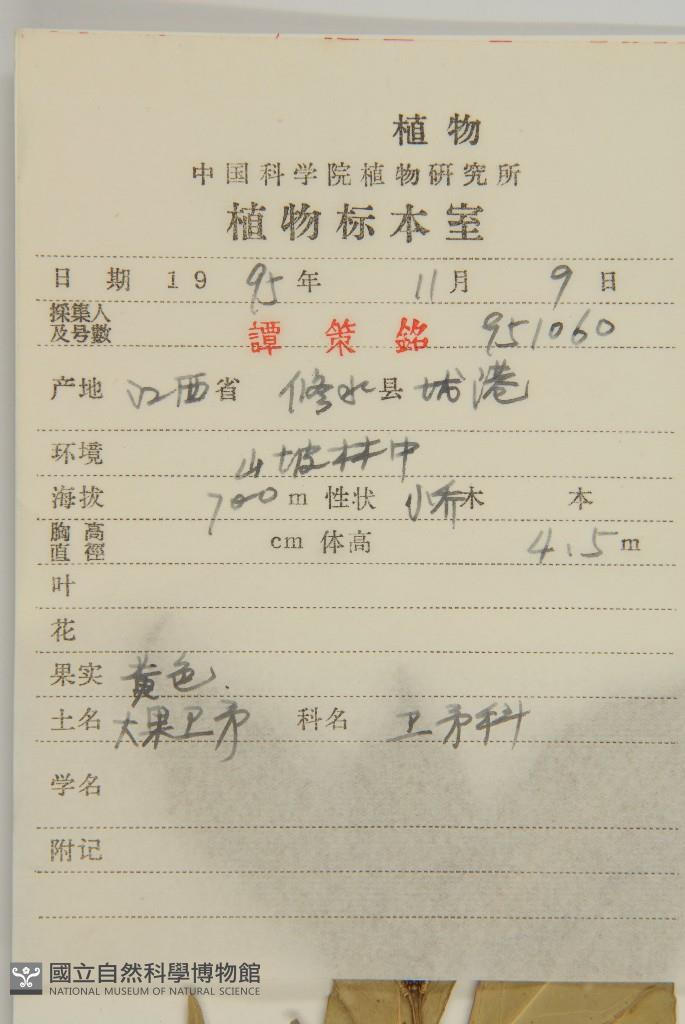 植物
中国科学院植物研究所
植物标本室
日期 19 95 年 11 月 9 日
採集人及号數 譚策銘 951060
产地 江西省 修水县 城港
环境 山坡林中
海拔 700 m 性状 小乔木 本
胸高直徑 cm 体高 4.5 m
叶
花
果实 黄色.
土名 大果卫矛 科名 卫矛科
学名
附记
國立自然科學博物館
NATIONAL MUSEUM OF NATURAL SCIENCE